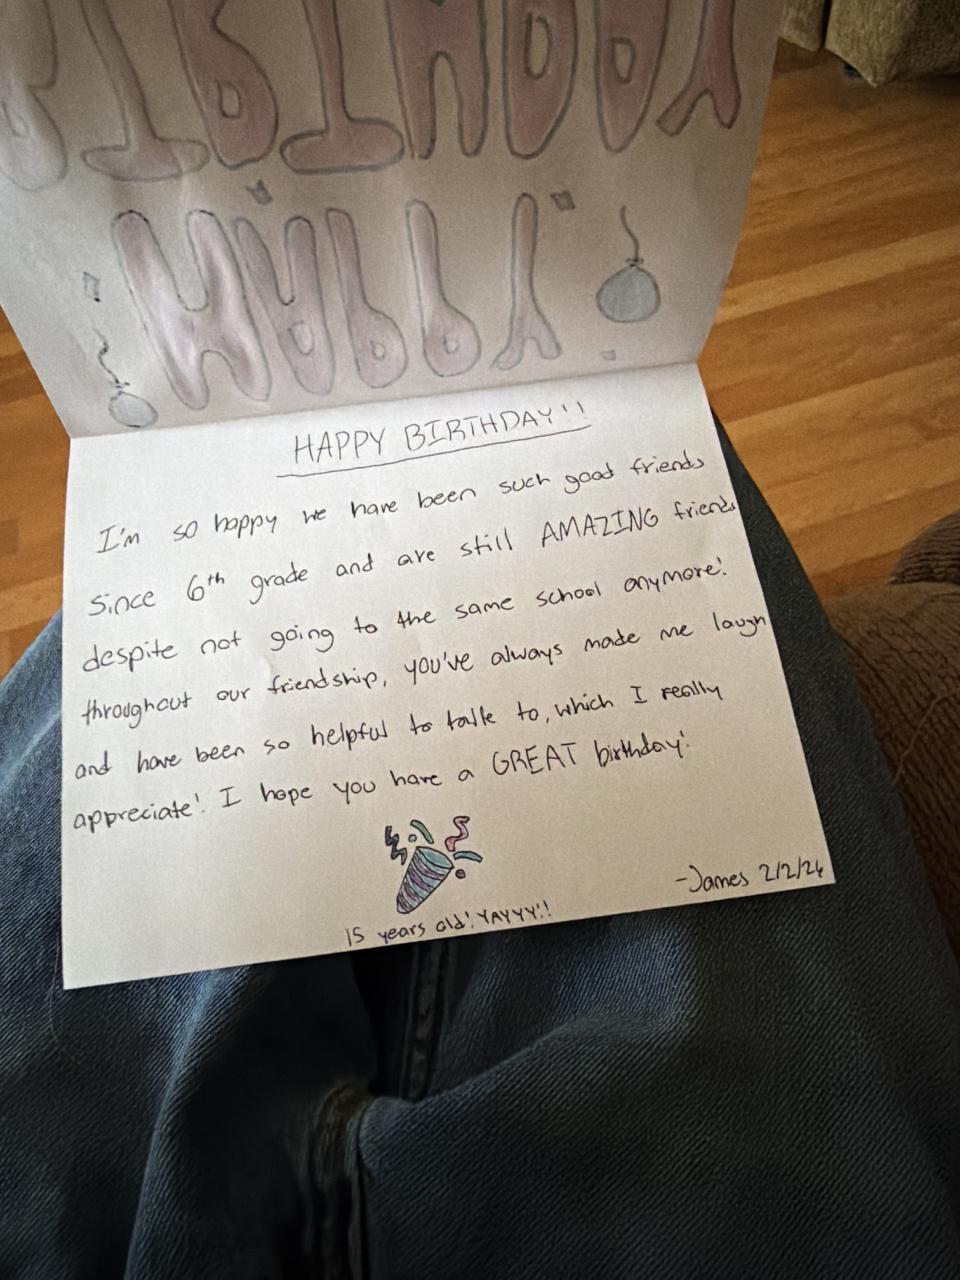 BIRTHDAY
HAPPY
HAPPY BIRTHDAY!!
I'm so happy we have been such good friends
since 6th grade and are still AMAZING friends
despite not going to the same school anymore!
throughout our friendship, you've always made me laugh
and have been so helpful to talk to, which I really
appreciate! I hope you have a GREAT birthday!
15 years old! YAYYY!!
-James 2/2/24